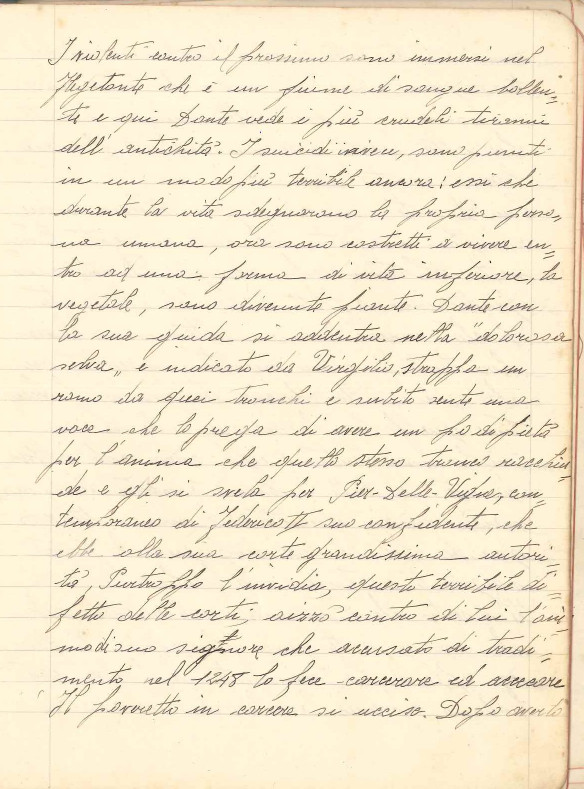 I violenti contro il prossimo sono immersi nel
Flegetonte che è un fiume di sangue bollen=
te e qui Dante vede i più crudeli tiranni
dell'antichità. I suicidi invece, sono puniti
in un modo più terribile ancora: essi che
durante la vita sdegnarono la propria perso=
na umana, ora sono costretti a vivere en=
tro ad una forma di vita inferiore, la
vegetale, sono divenute piante. Dante con
la sua guida si addentra nella "dolorosa
selva„ e indicato da Virgilio, strappa un
ramo da quei tronchi e subito sente una
voce che lo prega di avere un po di pietà
per l'anima che quello stesso tronco racchiu=
de e gli si svela per Pier-Delle-Vigne, con=
temporaneo di Federico II suo confidente, che
ebbe alla sua corte grandissima autori=
tà. Purtroppo l'invidia, questo terribile di=
fetto delle corti, aizzò contro di lui l'ani=
mo di suo signore che accusato di tradi=
mento nel 1248 lo fece carcerare ed accecare
Il poveretto in carcere si uccise. Dopo averlo